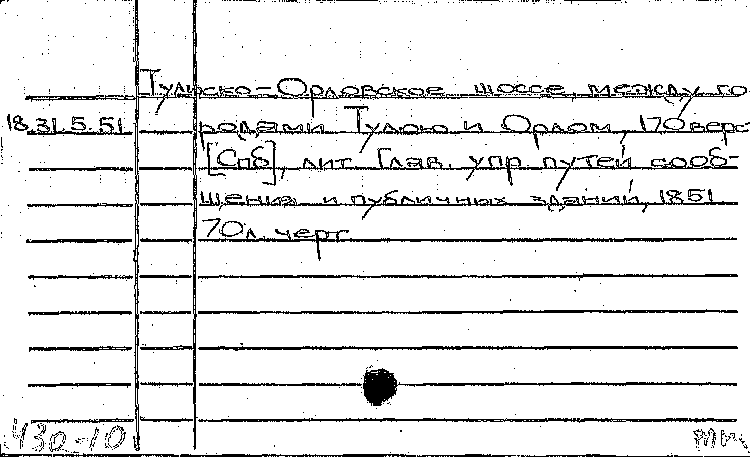 Тульско-Орловское шоссе, между го-
18.31.5.51 родами Тулою и Орлом, 170 верс
[Спб], лит. Глав. упр. путей сооб-
щения и публичных зданий, 1851
70 л. черт.
430-10